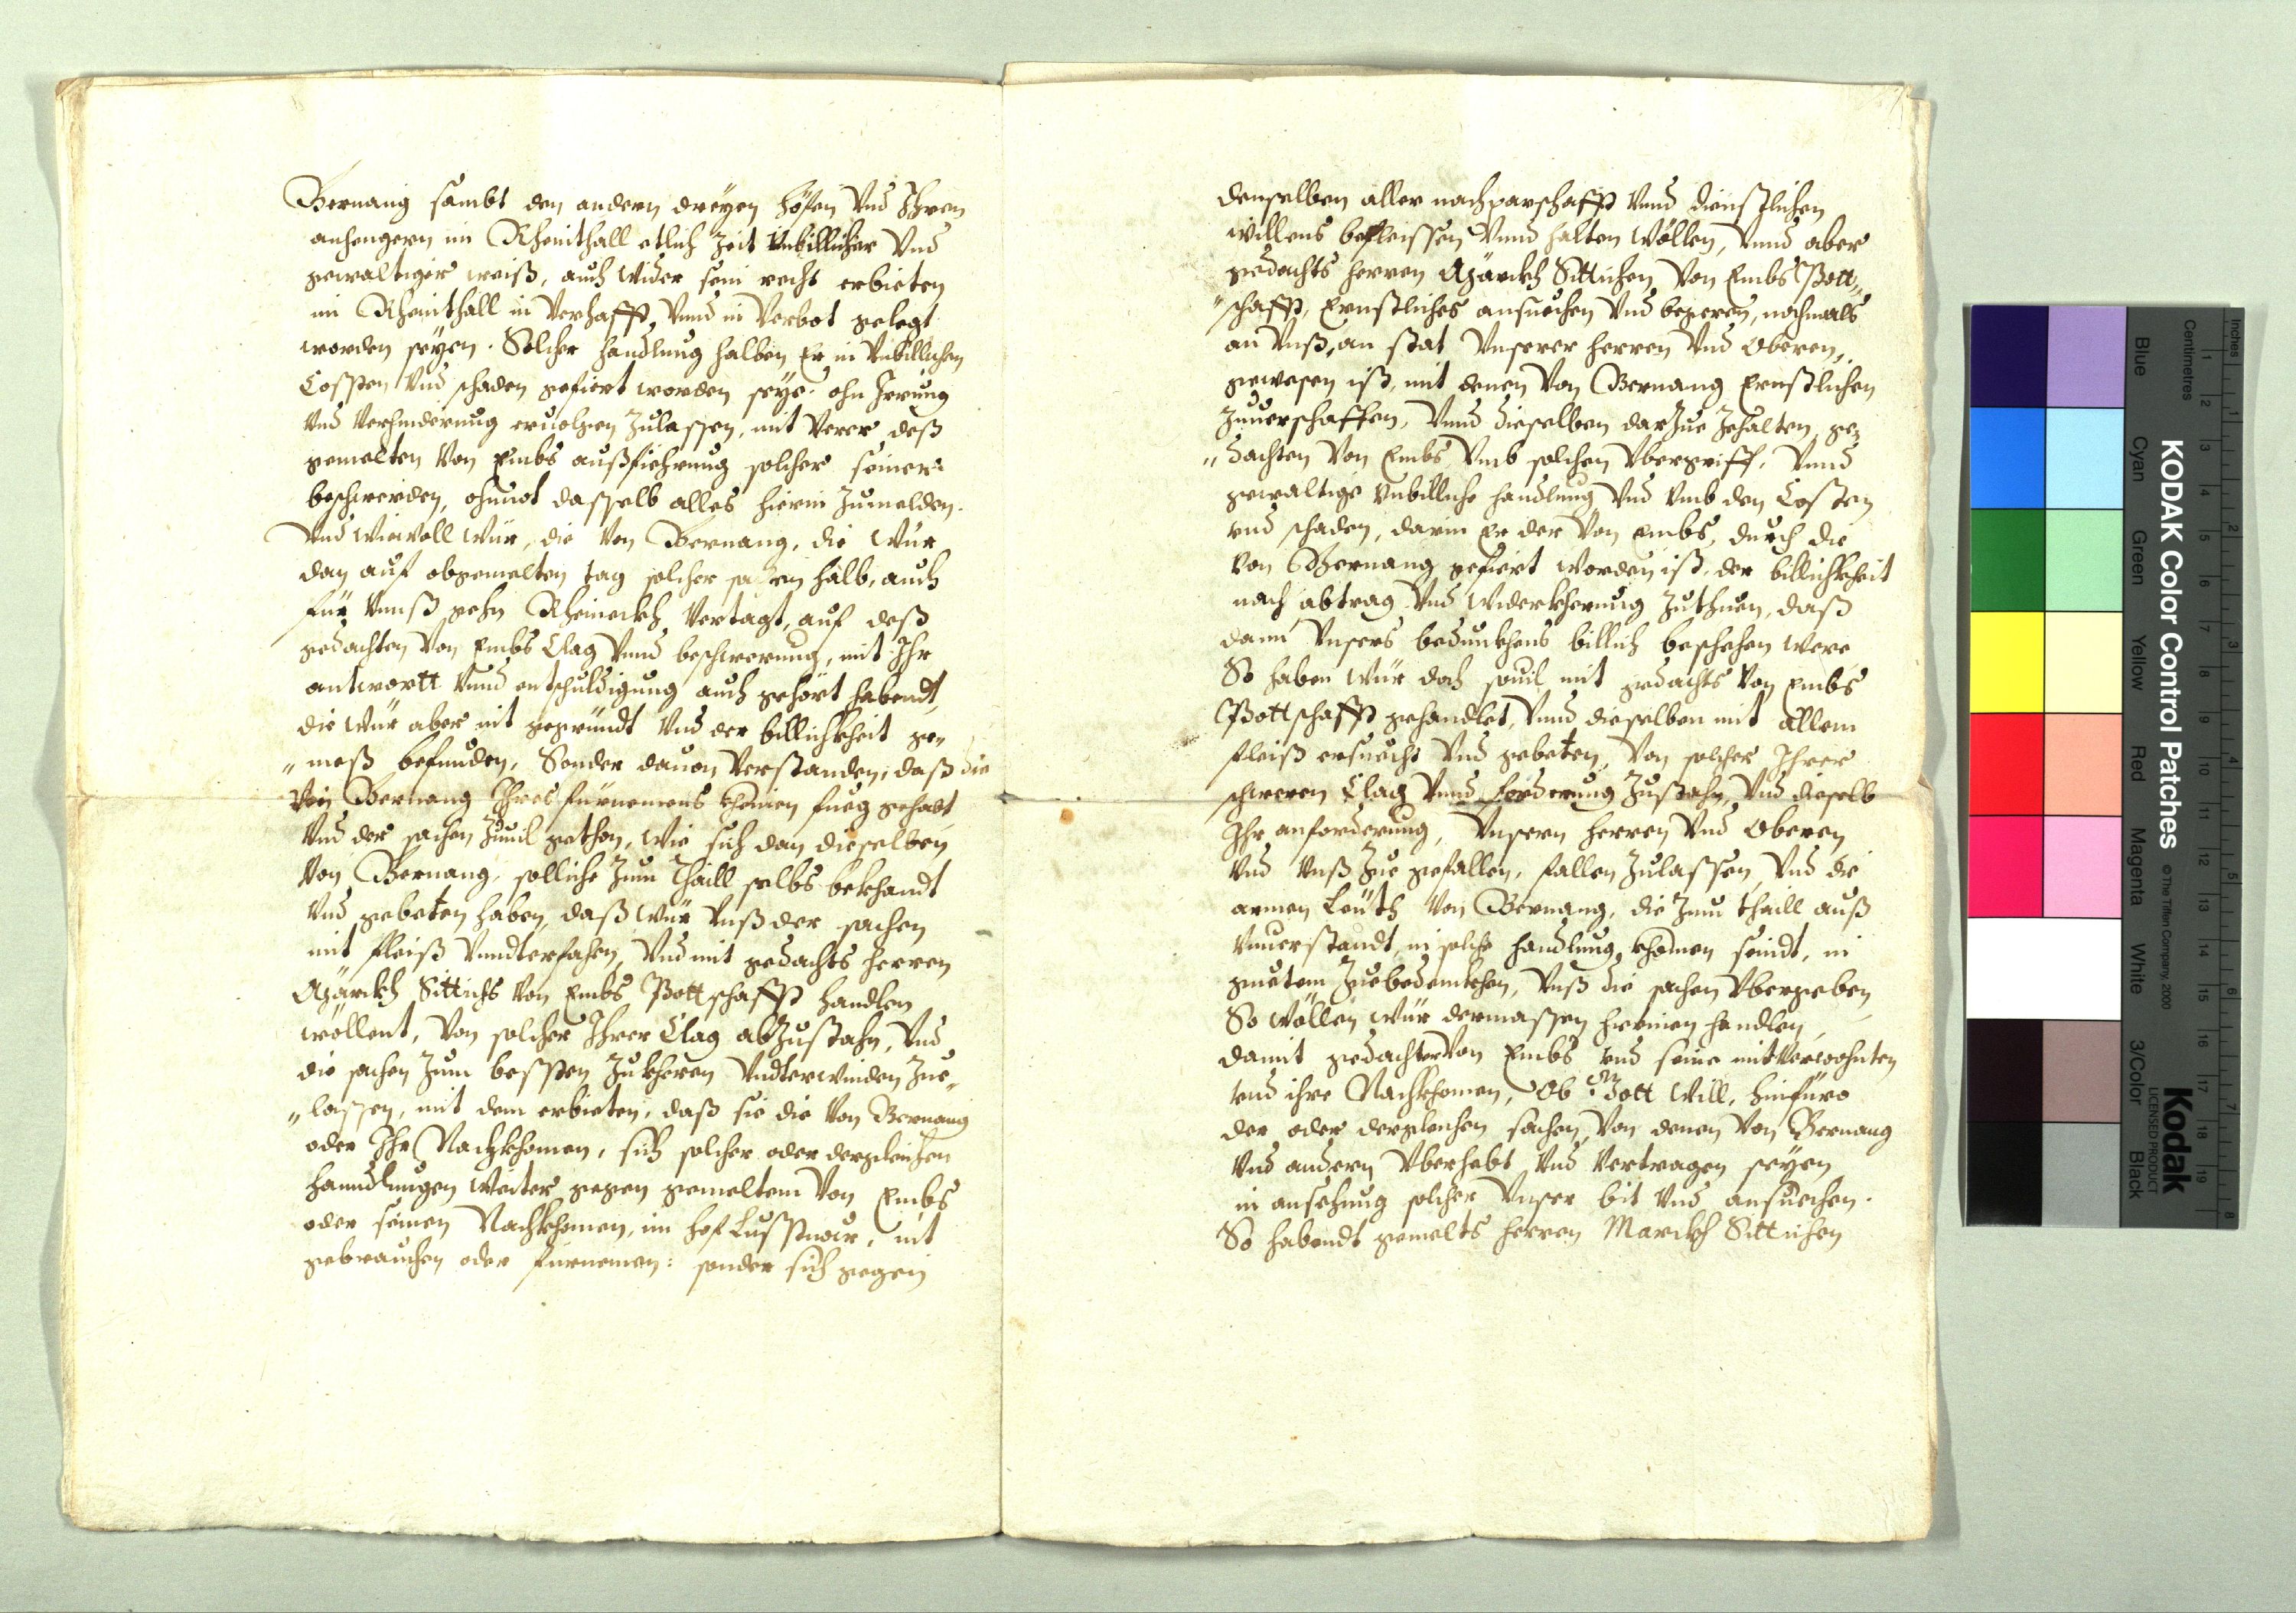 Bernang sambt den andern dreyen höfen Vnd Ihren
anhengern im Rheinthall etlich Zeit Vnbillicher Vnd
gewaltiger weiß, auch wider sein recht erbieten
im Rheinthall in Verhafft, Vnnd in Verbot gelegt
worden seyen. Solcher handlung halben Er in Vnbillichen
Cossten Vnd schaden gefiert worden seye. ohn Irrung
Vnd Verhinderung eruolgen Zulassen, mit Verer deß
gemelten Von Embs außfiehrung solcher seiner
beschwerden, ohnnot dasselb alles hierin Zumelden.
Vnd wiewoll wür, die Von Bernang, die wür
dan auf obgemelten tag solcher sachen halb, auch
für Vnnß gehn Rheineckh Vertagt, auf deß
gedachten Von Embs Clag Vnnd beschwerung, mit Ihr
antwortt Vnnd entschuldigung auch gehört habendt,
die wür aber nit gegründt Vnd der billichkheit ge„
„meß befunden, Sonder dauon Verstanden, daß die
Von Bernang Ihres fürnemens kheinen fueg gehabt
Vnd der sachen Zuuil gethon, wie sich dan dieselben
Von Bernang, solliche Zum Thaill selbs bekhandt
Vnd gebeten haben, daß wür Vnß der sachen
mit fleiß Vnndterfahen, Vnd mit gedachts herren
Märckh Sittichs Von Embs Bottschafft handlen
wöllent, Von solcher Ihrer Clag abZustahn, Vnd
die sachen Zum bessten Zukheren Vndterwinden Zue„
„lassen, mit dem erbieten, daß sie die Von Bernang
oder Ihr Nachkhomen, sich solcher oder dergleichen
hanndlungen weiter gegen gemeltem Von Embs
oder seinen Nachkhomen, im hof Lusstnow, nit
gebrauchen oder fürnemen: sonder sich gegen
denselben aller nachparschafft Vnnd dienstlichen
willens befleissen Vnnd halten wöllen, Vnnd aber
gedachts herren Märckh Sittichen Von Embs Bott„
„schafft, Ernstliches ansuechen Vnd begeren, nochmals
an Vnß, an stat Vnserer herren Vnd Oberen,
gewesen ist, mit denen Von Bernang Ernstlichen
Zuuerschaffen, Vnnd dieselben darZue Zehalten, ge„
„dachten Von Embs Vmb solchen Vbergriff, Vnnd
gewaltige Vnbilliche handlung Vnd Vmb den Costen
vnd schaden, darin Er der Von Embs, durch die
Von Bernang gefiert worden ist, der billichkheit
nach abtrag Vnd widerkherung Zuthuen, daß
dann Vnsers bedunckhens billich beschehen were
So haben wür doch souil mit gedachts Von Embs
Bottschafft gehandlet, Vnnd dieselben mit allem
fleiß ersuecht Vnd gebeten, Von solcher Ihrer
schweren Clag Vnnd forderung Zustahn, Vnd dieselb
Ihr anforderung, Vnsern herren Vnd Oberen
Vnd Vnß Zue gefallen, fallen Zulassen, Vnd die
armen Leüth Von Bernang, die Zum thaill auß
Vnuerstandt, in solche handlung khomen seindt, in
guetem Zuebedenckhen, Vnß die sachen Vbergeben
So wöllen wür dermassen hierinen handlen,
damit gedachter Von Embs vnd seine mitverwohnten
vnd ihre Nachkhomen, Ob Gott will, hinfüro
der oder dergleichen sachen, Von denen Von Bernang
Vnd andern Vberhebt Vnd Vertragen seyen
in ansehung solcher Vnser bit Vnd ansuechen.
So habendt gemelts herren Marckh Sittichen
KODAK Color Control Patches © The Tiffen Company, 2000
Kodak
LICENSED PRODUCT
Blue Cyan Green Yellow Red Magenta White 3/Color Black
Inches 1 2 3 4 5 6 7 8
Centimetres 1 2 3 4 5 6 7 8 9 10 11 12 13 14 15 16 17 18 19